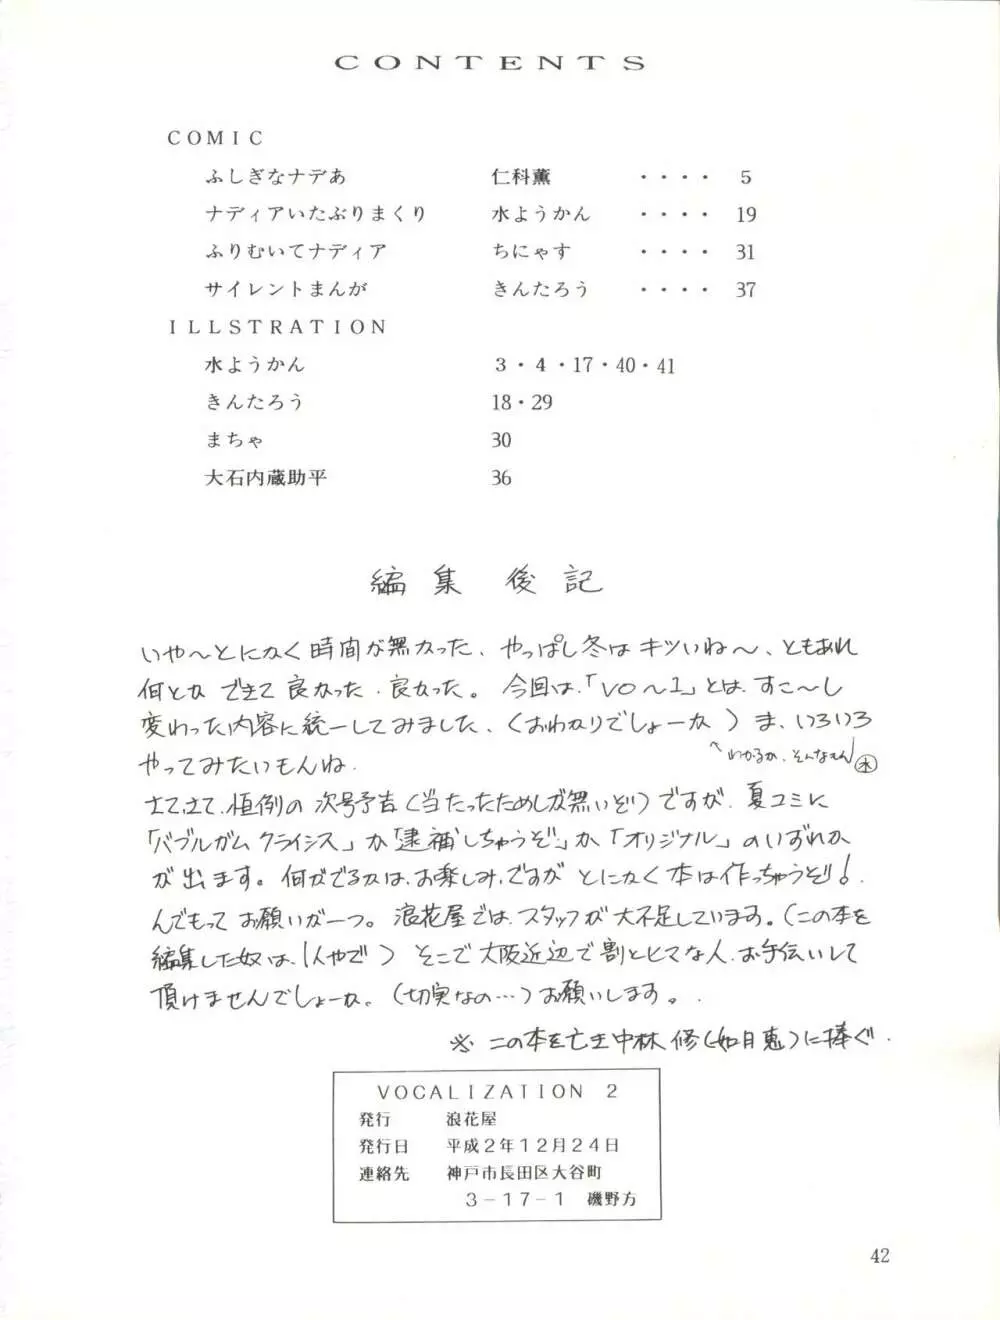 CONTENTS
COMIC
ふしぎなナデあ 仁科薫 ・・・・ 5
ナディアいたぶりまくり 水ようかん ・・・・ 19
ふりむいてナディア ちにゃす ・・・・ 31
サイレントまんが きんたろう ・・・・ 37
ILLSTRATION
水ようかん 3・4・17・40・41
きんたろう 18・29
まちゃ 30
大石内蔵助平 36
編集後記
いや〜とにかく時間が無かった、やっぱし冬はキツいね〜、ともあれ
何とか できて 良かった、良かった。今回は、「VO〜1」とは、すこ〜し
変わった内容に統一してみました、(おわかりでしょーか) ま、いろいろ
へわかるか、そんなもん 水
やってみたいもんね、
さて、さて、恒例の 次号予告(当たったためしが無いぞ!)ですが、夏コミに
「バブルガムクライシス」か「逮捕しちゃうぞ」か「オリジナル」のいずれか
が出ます。何がでるかは、お楽しみ、ですが とにかく本は作っちゃうぞ!
んでもって お願いが一つ。浪花屋では、スタッフが 大不足しています。(この本を
編集した奴は、1人やで) そこで大阪近辺で割とヒマな人、お手伝いして
頂けませんでしょーか。(切実なの…)お願いします。
※ この本を亡き中林 修(如月恵)に捧ぐ.
VOCALIZATION 2
発行 浪花屋
発行日 平成2年12月24日
連絡先 神戸市長田区大谷町
3−17−1 磯野方
42